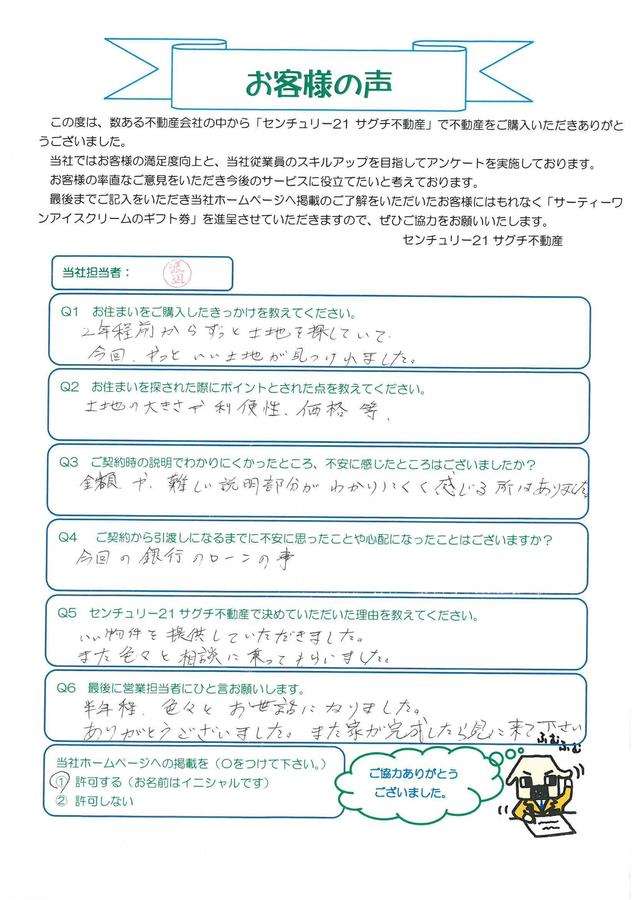 お客様の声
この度は、数ある不動産会社の中から「センチュリー21 サグチ不動産」で不動産をご購入いただきありがと
うございました。
当社ではお客様の満足度向上と、当社従業員のスキルアップを目指してアンケートを実施しております。
お客様の率直なご意見をいただき今後のサービスに役立てたいと考えております。
最後までご記入をいただき当社ホームページへ掲載のご了解をいただいたお客様にはもれなく「サーティーワ
ンアイスクリームのギフト券」を進呈させていただきますので、ぜひご協力をお願いいたします。
センチュリー21 サグチ不動産
当社担当者： 渡辺
Q1 お住まいをご購入したきっかけを教えてください。
2年程前からずっと土地を探していて、
今回、やっといい土地が見つけれました。
Q2 お住まいを探された際にポイントとされた点を教えてください。
土地の大きさや利便性、価格等、
Q3 ご契約時の説明でわかりにくかったところ、不安に感じたところはございましたか？
金額や、難しい説明部分がわかりにくく感じる所はありました
Q4 ご契約から引渡しになるまでに不安に思ったことや心配になったことはございますか？
今回の銀行のローンの事
Q5 センチュリー21 サグチ不動産で決めていただいた理由を教えてください。
いい物件を提供していただきました。
また色々と相談に乗ってもらいました。
Q6 最後に営業担当者にひと言お願いします。
半年程、色々とお世話になりました。
ありがとうございました。また家が完成したら見に来て下さい
当社ホームページへの掲載を（○をつけて下さい。）
① 許可する（お名前はイニシャルです）
② 許可しない
ご協力ありがとう
ございました。
ふむふむ